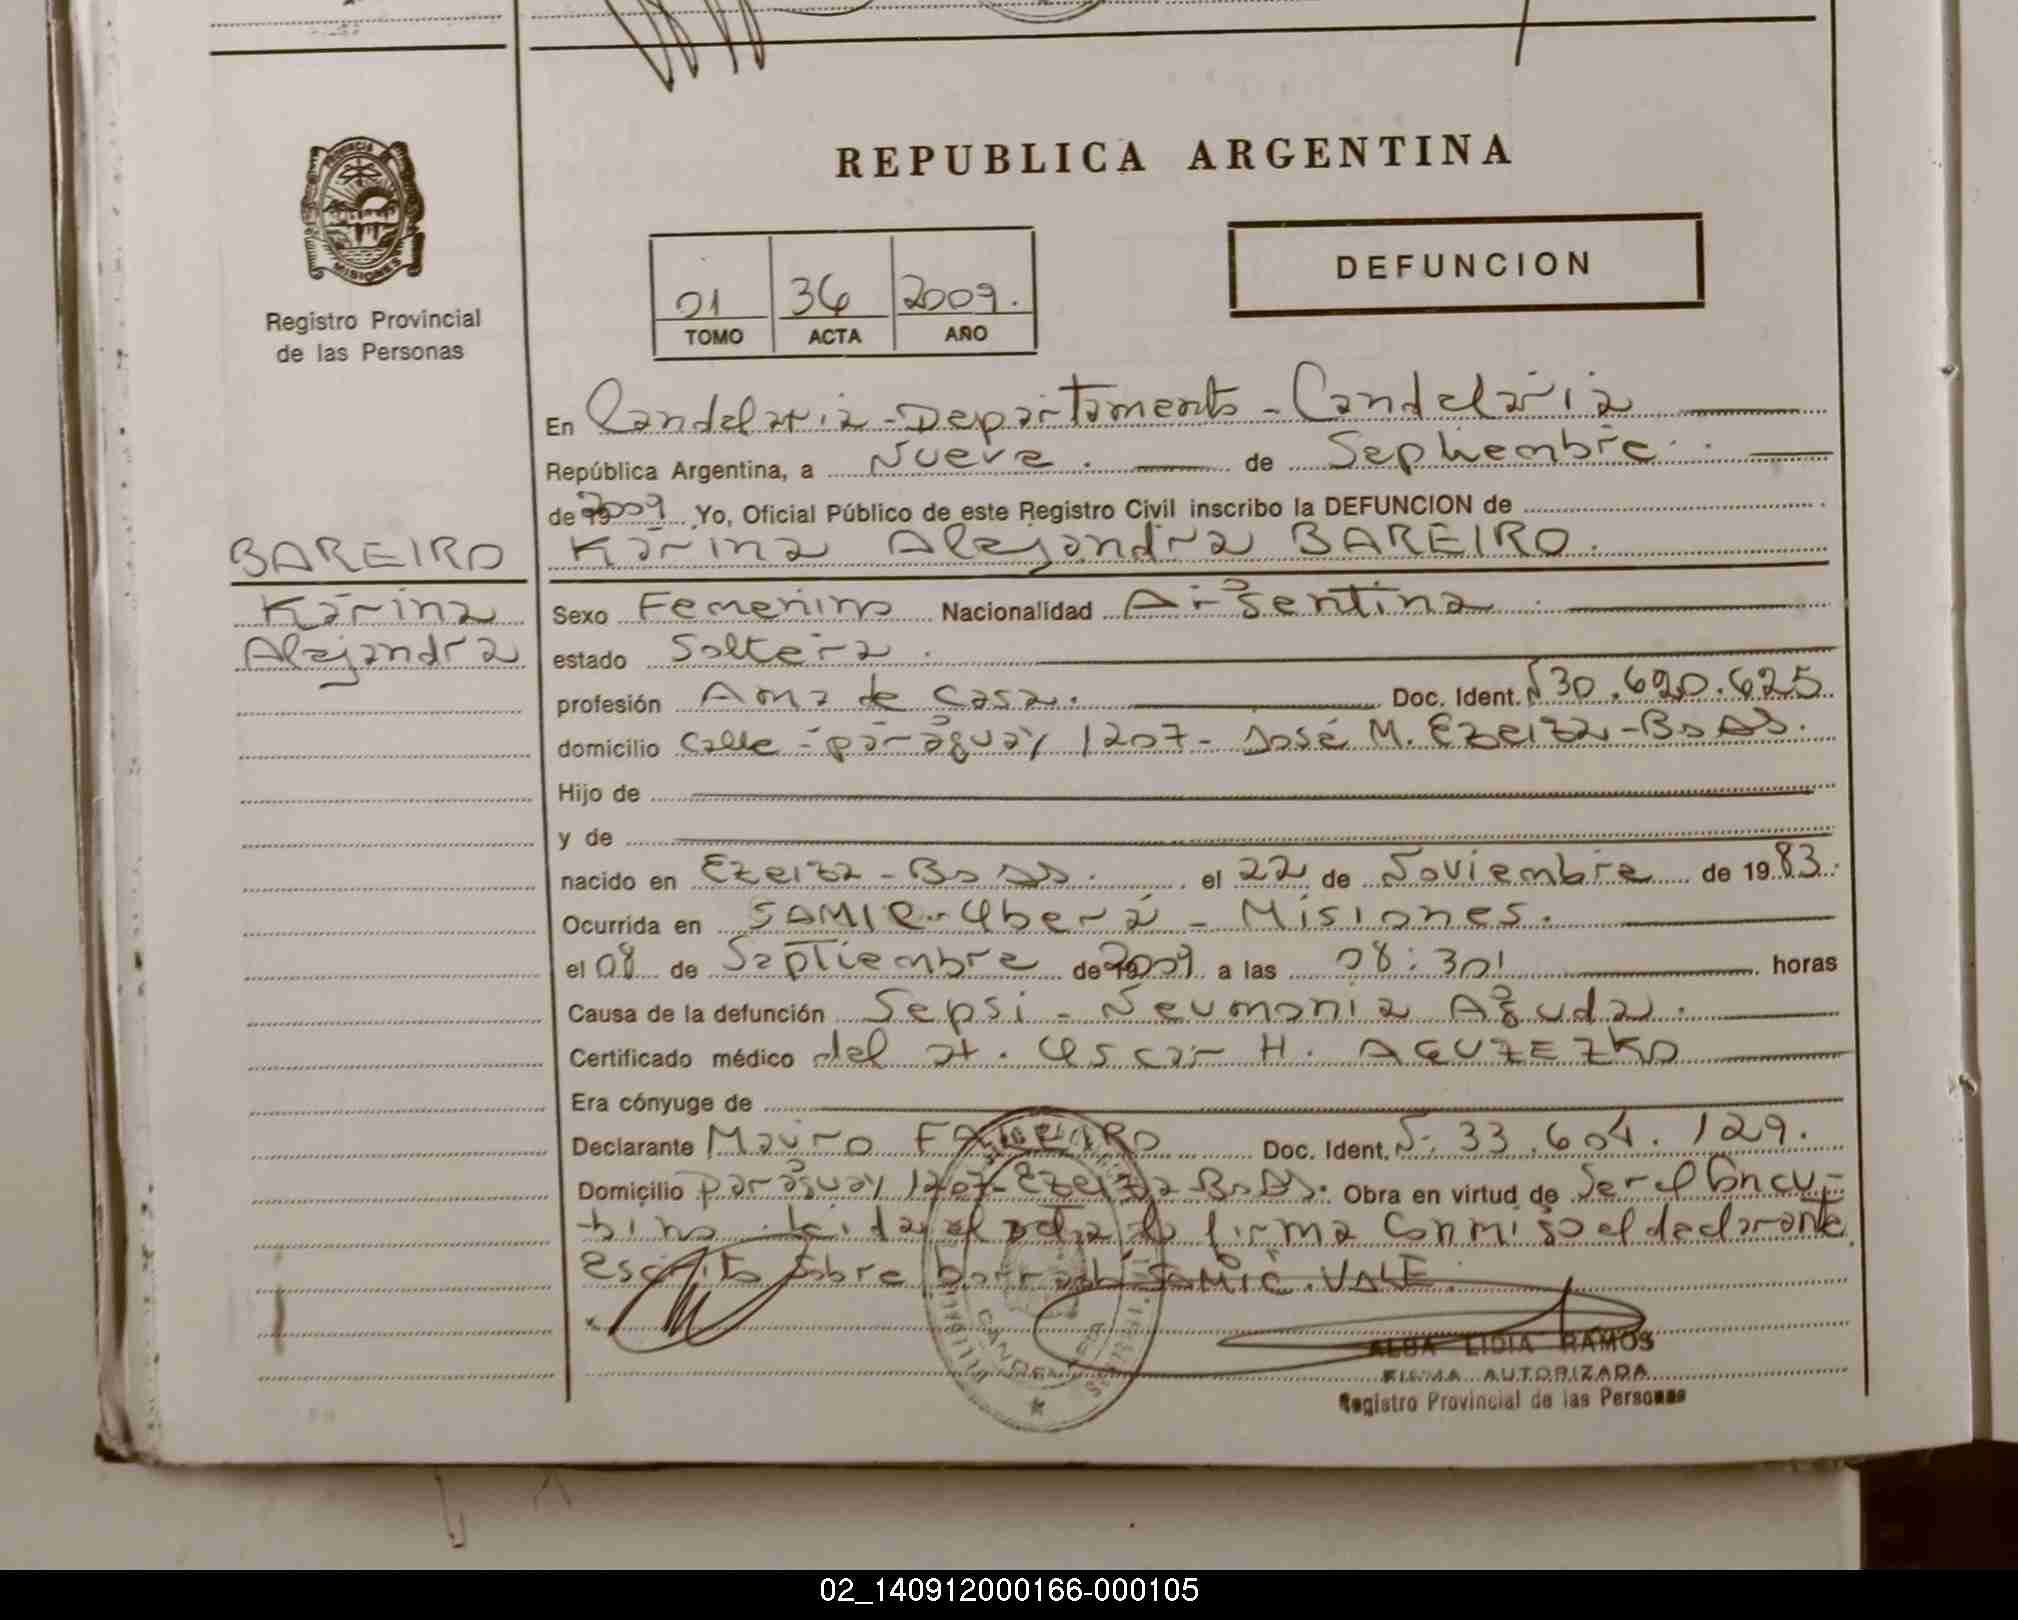 PROVINCIA DE
MISIONES
Registro Provincial
de las Personas
REPUBLICA ARGENTINA
01 36 2009.
TOMO ACTA AÑO
DEFUNCION
En Candelaria - Departamento - Candelaria
República Argentina, a Nueve. de Sephembre.
de 2009 Yo, Oficial Público de este Registro Civil inscribo la DEFUNCION de
Karina Alejandra BAREIRO.
BAREIRO
Karina
Alejandra
Sexo Femenino Nacionalidad Argentina
estado Soltera.
profesión Ama de casa. Doc. Ident. N 30.620.625
domicilio Calle - paraguay 1207 - José M. Ezeiza - Bs As.
Hijo de
y de
nacido en Ezeiza - Bs As. el 22 de Noviembre de 1983.
Ocurrida en SAMIC - Oberá - Misiones.
el 08 de Septiembre de 2009 a las 08:30' horas
Causa de la defunción Sepsi - Neumonia Aguda.
Certificado médico del
Era cónyuge de
Declarante Mauro Doc. Ident. N: 33.604.129.
Domicilio paraguay 1207 - Ezeiza - Bs As. Obra en virtud de Ser el Concu-
bino. Leida el acta la firma Conmigo el declarante
escrito sobre borrado: SAMIC. VALE.
CANDELARIA
ALBA LIDIA RAMOS
FIRMA AUTORIZADA
Registro Provincial de las Personas
02_140912000166-000105